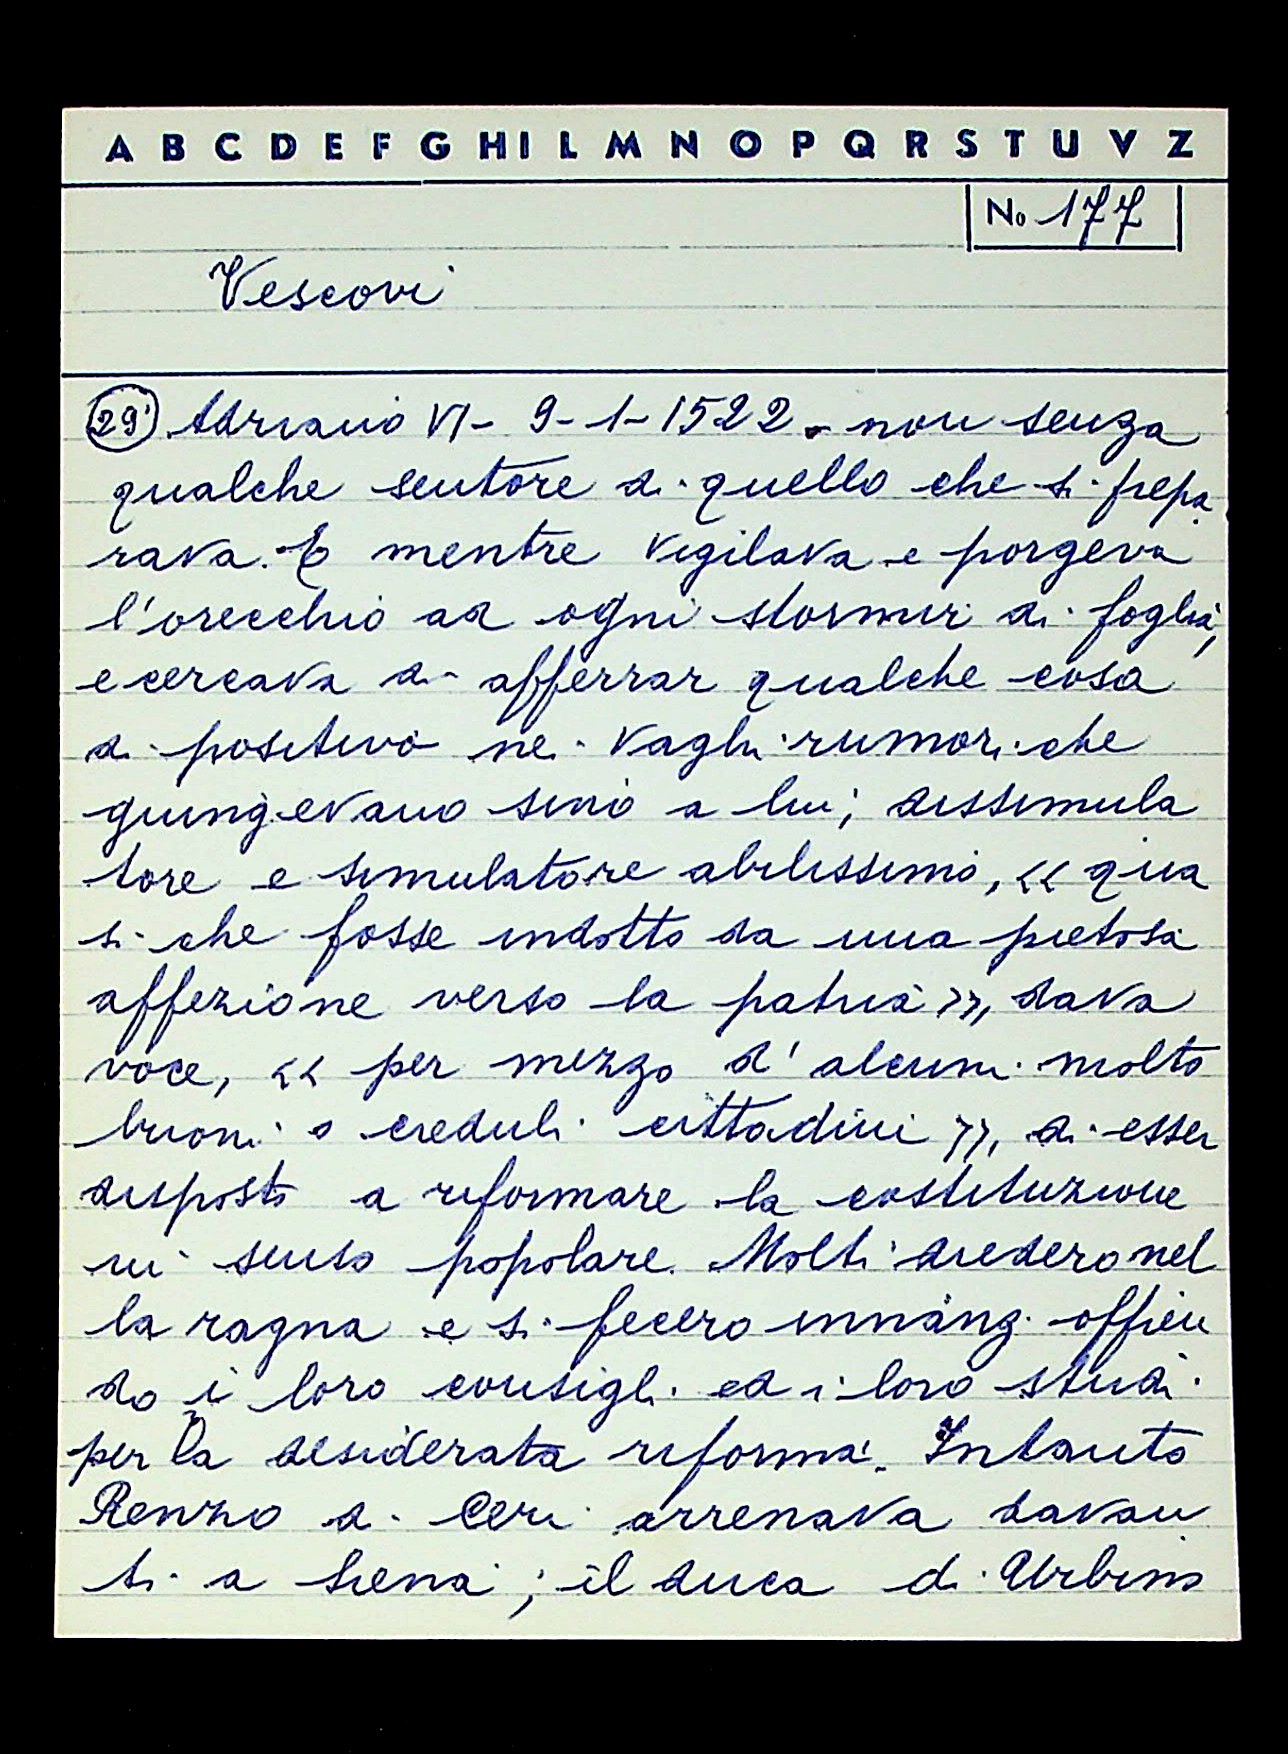 A B C D E F G H I L M N O P Q R S T U V Z
No 177
Vescovi
29) Adriano VI - 9-1-1522 - non senza
qualche sentore di quello che si prepa
rava. E mentre vigilava e porgeva
l'orecchio ad ogni stormir di foglia,
e cercava di afferrar qualche cosa
di positivo nei vaghi rumori che
giungevano sino a lui; dissimula
tore e simulatore abilissimo, << qua
si che fosse indotto da una pietosa
affezione verso la patria >>, dava
voce, << per mezzo d'alcuni molto
buoni o creduli cittadini >>, di esser
disposto a riformare la costituzione
in senso popolare. Molti diedero nel
la ragna e si fecero innanzi offren
do i loro consigli ed i loro studi
per la desiderata riforma. Intanto
Renzo di Ceri arrenava davan
ti a Siena; il duca di Urbino